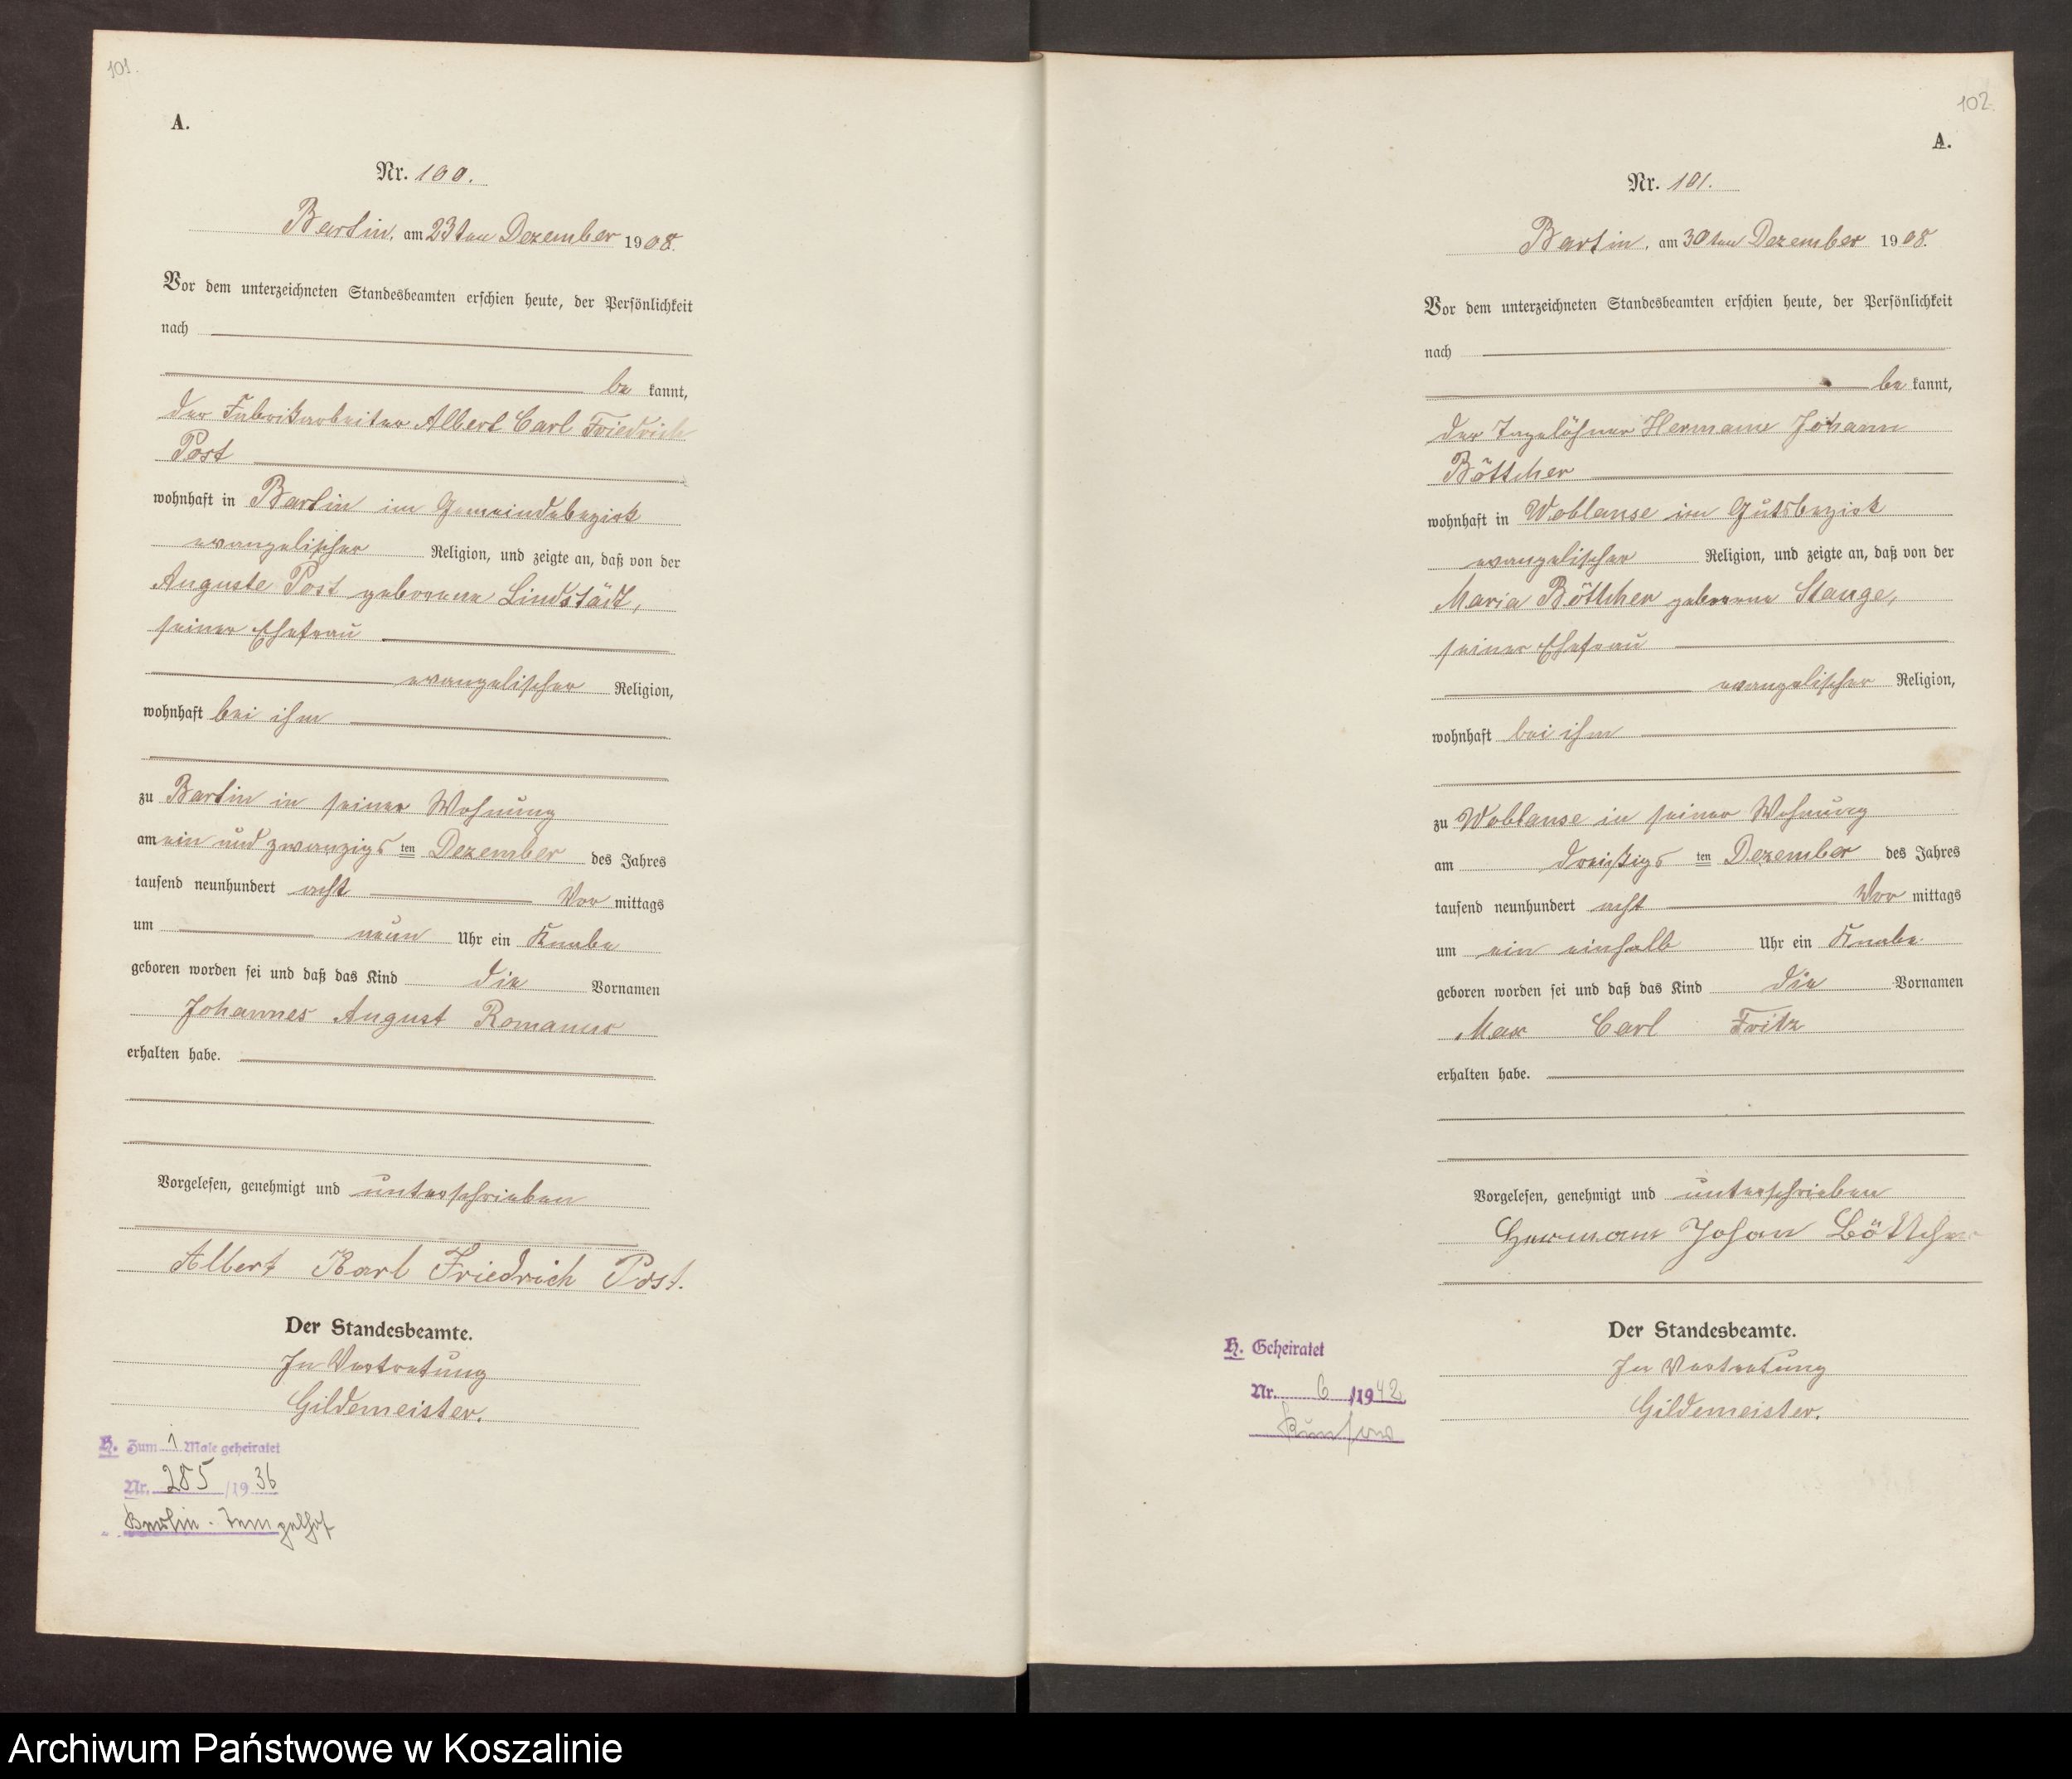 101.
A.
Nr. 100.
Bartin, am 23ten Dezember 1908.
Vor dem unterzeichneten Standesbeamten erschien heute, der Persönlichkeit
nach
be kannt,
der Fabrikarbeiter Albert Carl Friedrich
Post
wohnhaft in Bartin im Gemeindebezirk
evangelischer Religion, und zeigte an, daß von der
Auguste Post geborene Lindstädt,
seiner Ehefrau
evangelischer Religion,
wohnhaft bei ihm
zu Bartin in seiner Wohnung
am ein und zwanzigsten Dezember des Jahres
tausend neunhundert acht Vor mittags
um neun Uhr ein Knabe
geboren worden sei und daß das Kind die Vornamen
Johannes August Romanus
erhalten habe.
Vorgelesen, genehmigt und unterschrieben
Albert Karl Friedrich Post.
Der Standesbeamte.
In Vertretung
Gildemeister.
H. Zum 1 Male geheiratet
Nr. 285 /1936
Berlin-Tempelhof
102.
A.
Nr. 101.
Bartin, am 30ten Dezember 1908.
Vor dem unterzeichneten Standesbeamten erschien heute, der Persönlichkeit
nach
be kannt,
der Tagelöhner Hermann Johann
Böttcher
wohnhaft in Woblanse im Gutsbezirk
evangelischer Religion, und zeigte an, daß von der
Maria Böttcher geborene Stange,
seiner Ehefrau
evangelischer Religion,
wohnhaft bei ihm
zu Woblanse in seiner Wohnung
am dreißigsten Dezember des Jahres
tausend neunhundert acht Vor mittags
um ein einhalb Uhr ein Knabe
geboren worden sei und daß das Kind die Vornamen
Max Carl Fritz
erhalten habe.
Vorgelesen, genehmigt und unterschrieben
Hermann Johan Böttcher
Der Standesbeamte.
In Vertretung
Gildemeister.
H. Geheiratet
Nr. 6 /1942
Archiwum Państwowe w Koszalinie